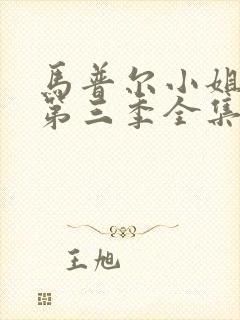 馬普尔小姐
第三季全集
王旭